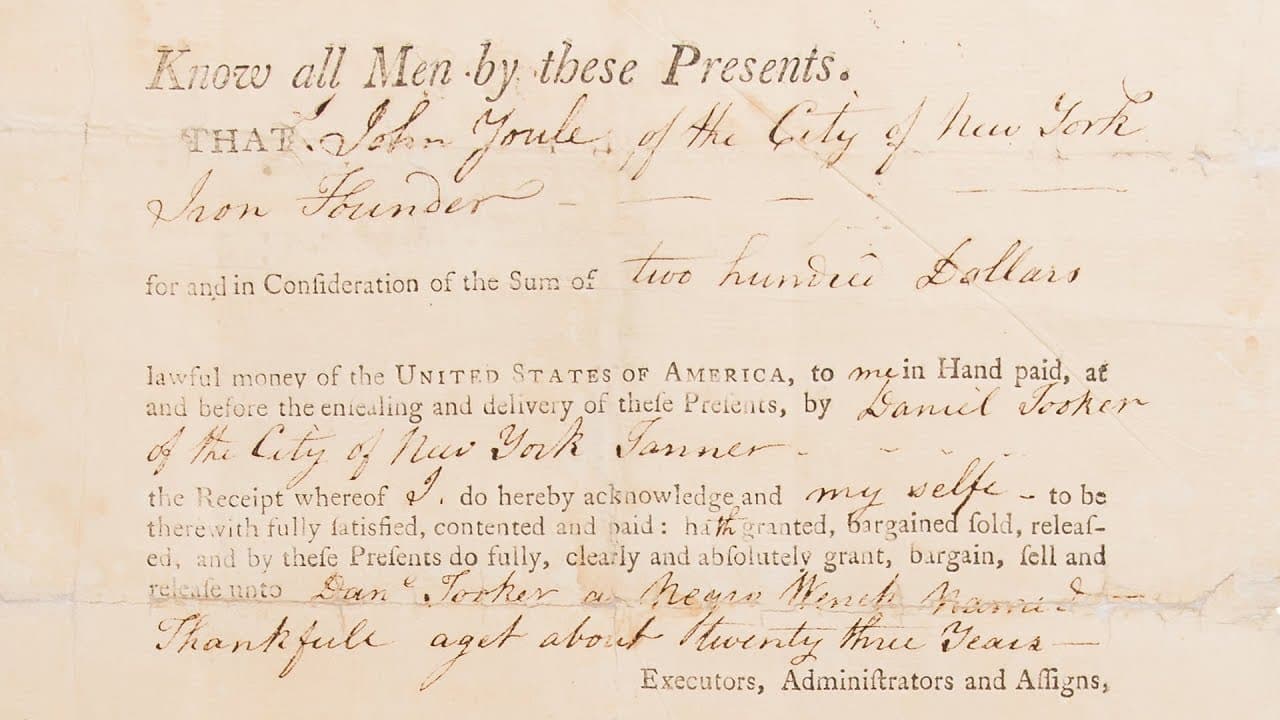 Know all Men by these Presents.
THAT I John Youle of the City of New York
Iron Founder
for and in Consideration of the Sum of two hundred Dollars
lawful money of the UNITED STATES OF AMERICA, to me in Hand paid, at
and before the ensealing and delivery of theſe Preſents, by Daniel Tooker
of the City of New York Tanner
the Receipt whereof I. do hereby acknowledge and my selfe to be
therewith fully ſatisfied, contented and paid: hath granted, bargained ſold, releaſ-
ed, and by theſe Preſents do fully, clearly and abſolutely grant, bargain, ſell and
releaſe unto Danl Tooker a Negro Wench Named
Thankfull aget about twenty three Years
Executors, Adminiſtrators and Aſſigns,